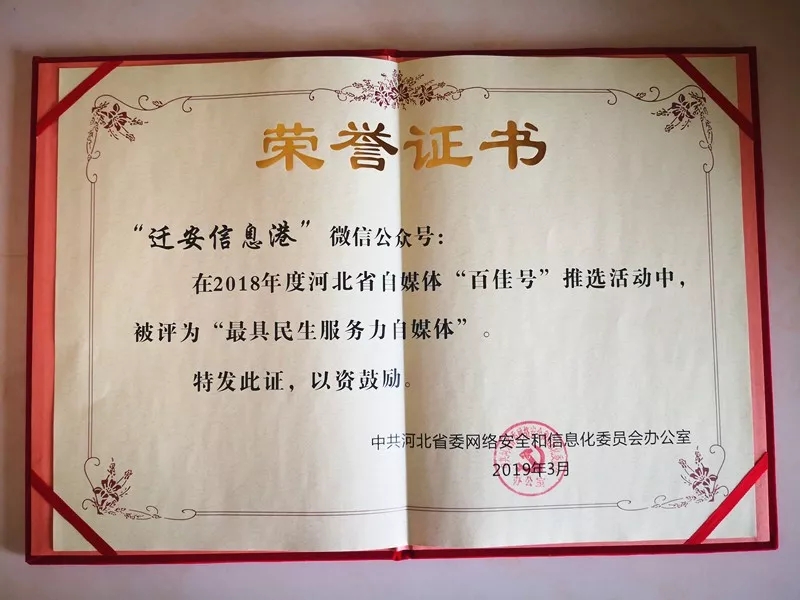 荣誉证书
“迁安信息港”微信公众号：
在2018年度河北省自媒体“百佳号”推选活动中，
被评为“最具民生服务力自媒体”。
特发此证，以资鼓励。
中共河北省委网络安全和信息化委员会办公室
2019年3月
办公室